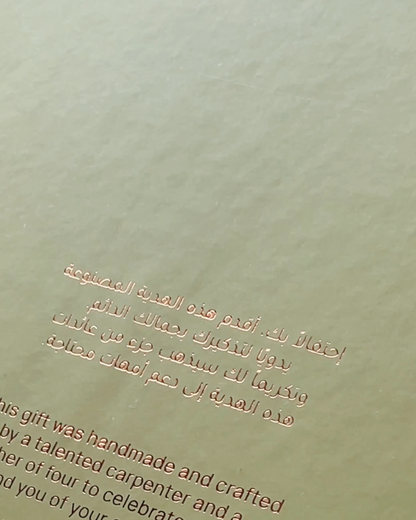 إحتفالاً بك، أقدم هذه الهدية المصنوعة
يدويًا لتذكيرك بجمالك الدائم.
وتكريمًا لك سيذهب جزء من عائدات
هذه الهدية إلى دعم أمهات محتاجة
his gift was handmade and crafted
by a talented carpenter and a
her of four to celebrate
nd you of your